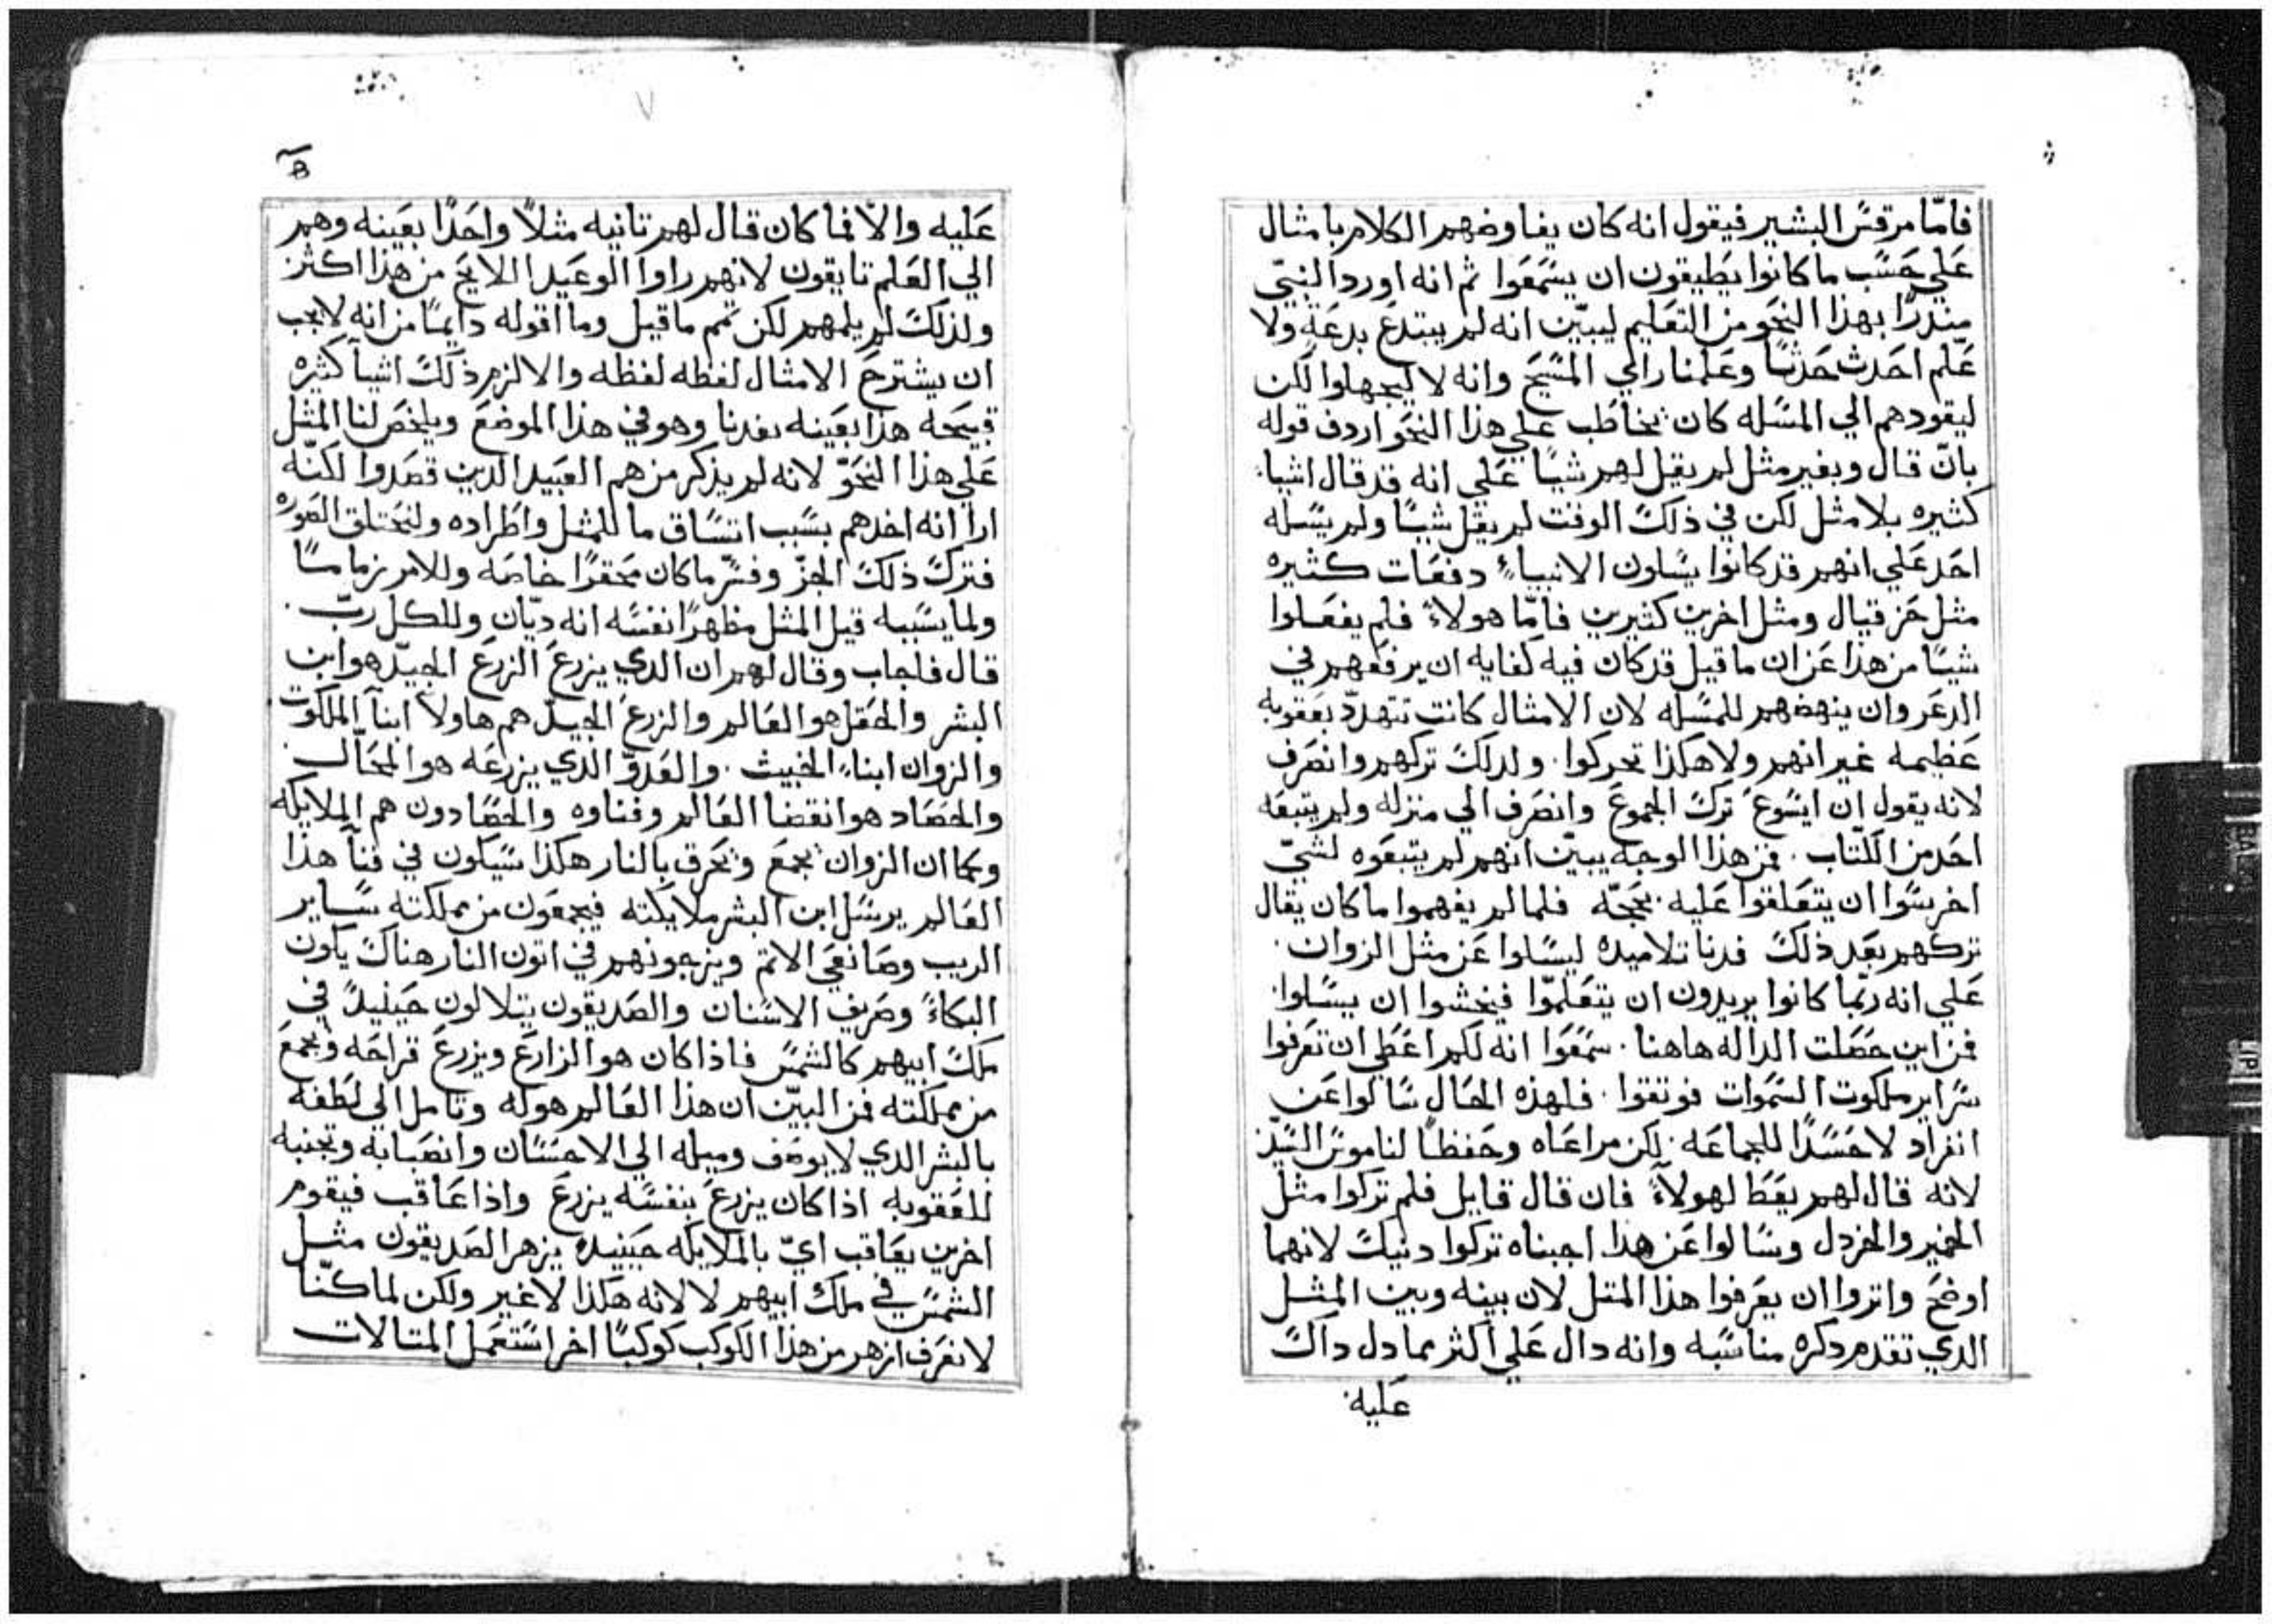 فامّا مرقس البشير فيقول انه كان يفاوضهم الكلام بامثال
علي حسب ما كانوا يطيقون ان يسمعوا ثم انه اورد النبيّ
منذرًا بهذا النحو من التعليم ليبيّن انه لم يبتدع بدعة ولا
علّم احدث حدثًا وعلمنا راي المسيح وانه لا ليجهلوا لكن
ليقودهم الي المسله كان يخاطب علي هذا النحو اردف قوله
بانّ قال وبغير مثل لم يقل لهم شيًا علي انه قد قال اشيا
كثيره بلا مثل لكن في ذلك الوقت لم يقل شيًا ولم يسله
احد علي انهم قد كانوا يسالون الانبياء دفعات كثيره
مثل حزقيال ومثل اخرين كثيرين فامّا هولاء فلم يفعلوا
شيًا من هذا عزان ما قيل قد كان فيه كفايه ان يرفعهم في
الدعر وان ينهضهم للمسله لان الامثال كانت تتهددّ بعقوبه
عظيمه غير انهم ولا هكذا تحركوا. ولدلك تركهم وانصرف
لانه يقول ان ايسوع ترك الجموع وانصرف الي منزله ولم يتبعه
احد من الكتّاب. فمن هذا الوجه يبيّن انهم لم يتبعوه لشيّ
اخر سوا ان يتعلقوا عليه بحجّه فلما لم يفهموا ما كان يقال
تركهم بعد ذلك فدنا تلاميده ليسالوا عن مثل الزوان.
علي انه ربّما كانوا يريدون ان يتعلموّا فيخشوا ان يسالوا.
فمن اين حصلت الداله هاهنا. سمعوا انه لكم اعطي ان تعرفوا
سراير ملكوت السموات فوتقوا. فلهذه الحال سالوا عن
انفراد لا حسدًا للجماعه. لكن مراعاه وحفظًا لناموس السيّد
لانه قال لهم يعط لهولاء فان قال قايل فلم تركوا مثل
الخمير والخردل وسالوا عن هدا. اجبناه تركوا دنيك لانهما
اوضح واتروا ان يعرفوا هذا المتل لان بينه وبين المثل
الدي تقدم دكره مناسبه وانه دال علي اكثر مما دل داك
عليه.
عليه والاّ فما كان قال لهم تانيه مثلاً واحدًا بعينه وهم
الي العلم تايقون لانهم راوا الوعيد اللايح من هذا اكثر
ولذلك لم يلمهم لكن تمم ما قيل وما اقوله دايمًا من انه لا يجب
ان يشترح الامثال لفظه لفظه والا لزم ذلك اشيا كثيره
قبيحه هذا بعينه يفدنا وهو في هذا الموضع ويلخص لنا المثل
علي هذا النحوّ لانه لم يذكر من هم العبيد الدين قصدوا لكنّه
ارا انه اخدهم بسبب اتساق ما للمثل واطراده ولتختلق الصوره
فترك ذلك الجزّ وفسّر ما كان محقرًا خاصه وللامر زماما
ولما يسببه قيل المثل مظهرًا نفسه انه ديّان وللكل ربّ.
قال فاجاب وقال لهم ان الدي يزرع الزرع الجيدّ هو ابن
البشر والحقل هو العالم والزرع الجيدّ هم هاولا ابنا الملكوت.
والزوان ابناء الخبيث. والعدوّ الدي يزرعه هو المحّال
والحصاد هو انقضا العالم وفناوه والحصادون هم الملايكه
وكما ان الزوان يجمع ويحرق بالنار هكذا سيكون في فنا هذا
العالم يرسل ابن البشر ملايكته فيجمعون من مملكته ساير
الريب وصانعي الاتم ويزجونهم في اتون النار هناك يكون
البكاء وصريف الاسنان والصديقون يتلالون حينيد في
ملك ابيهم كالشمس فاذا كان هو الزارع ويزرع قراحه ويجمع
من مملكته فمن البيّن ان هذا العالم هو له وتامل الي لطفه
بالبشر الدي لا يوصف وميله الي الاحسان وانصبابه وتجنبه
للعقوبه اذا كان يزرع بنفسه يزرع واذا عاقب فيقوم
اخرين يعاقب ايّ بالملايكه حينيد يزهر الصديقون مثل
الشمس في ملك ابيهم لا لانه هكذا لا غير ولكن لما كنّا
لا نعرف ازهر من هذا الكوكب كوكبًا اخر استعمل المتالات